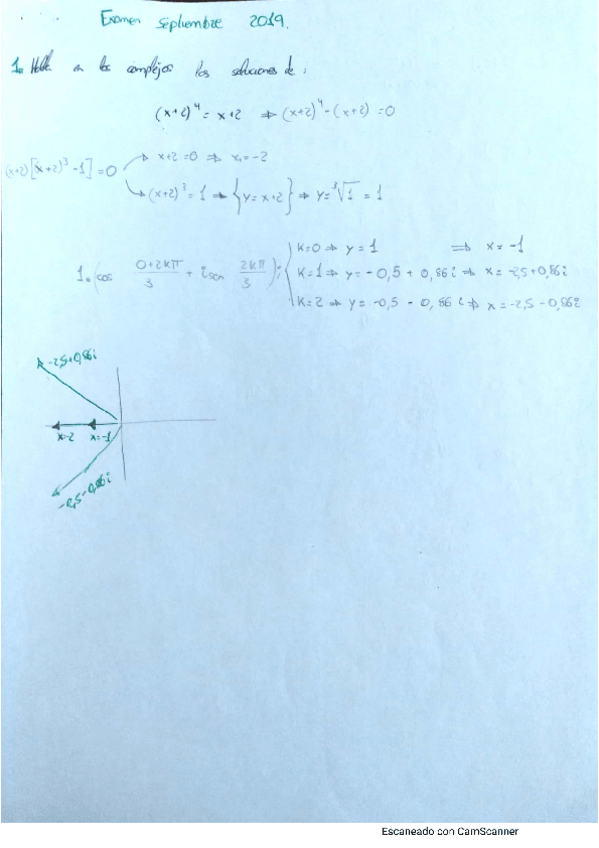 Examen septiembre 2019.
1. Halla en los complejos las soluciones de:
(x+2)⁴ = x+2 ⇒ (x+2)⁴-(x+2) = 0
(x+2)[(x+2)³-1] = 0
x+2=0 ⇒ x₁=-2
(x+2)³ = 1 ⇒ {y=x+2} ⇒ y=³√1 = 1
1. (cos (0+2kπ)/3 + i sen 2kπ/3);
K=0 ⇒ y=1 ⇒ x=-1
K=1 ⇒ y=-0,5 + 0,86i ⇒ x=-2,5+0,86i
K=2 ⇒ y=-0,5 - 0,86i ⇒ x=-2,5-0,86i
-2,5+0,86i
x=-2 x=-1
-2,5-0,86i
Escaneado con CamScanner